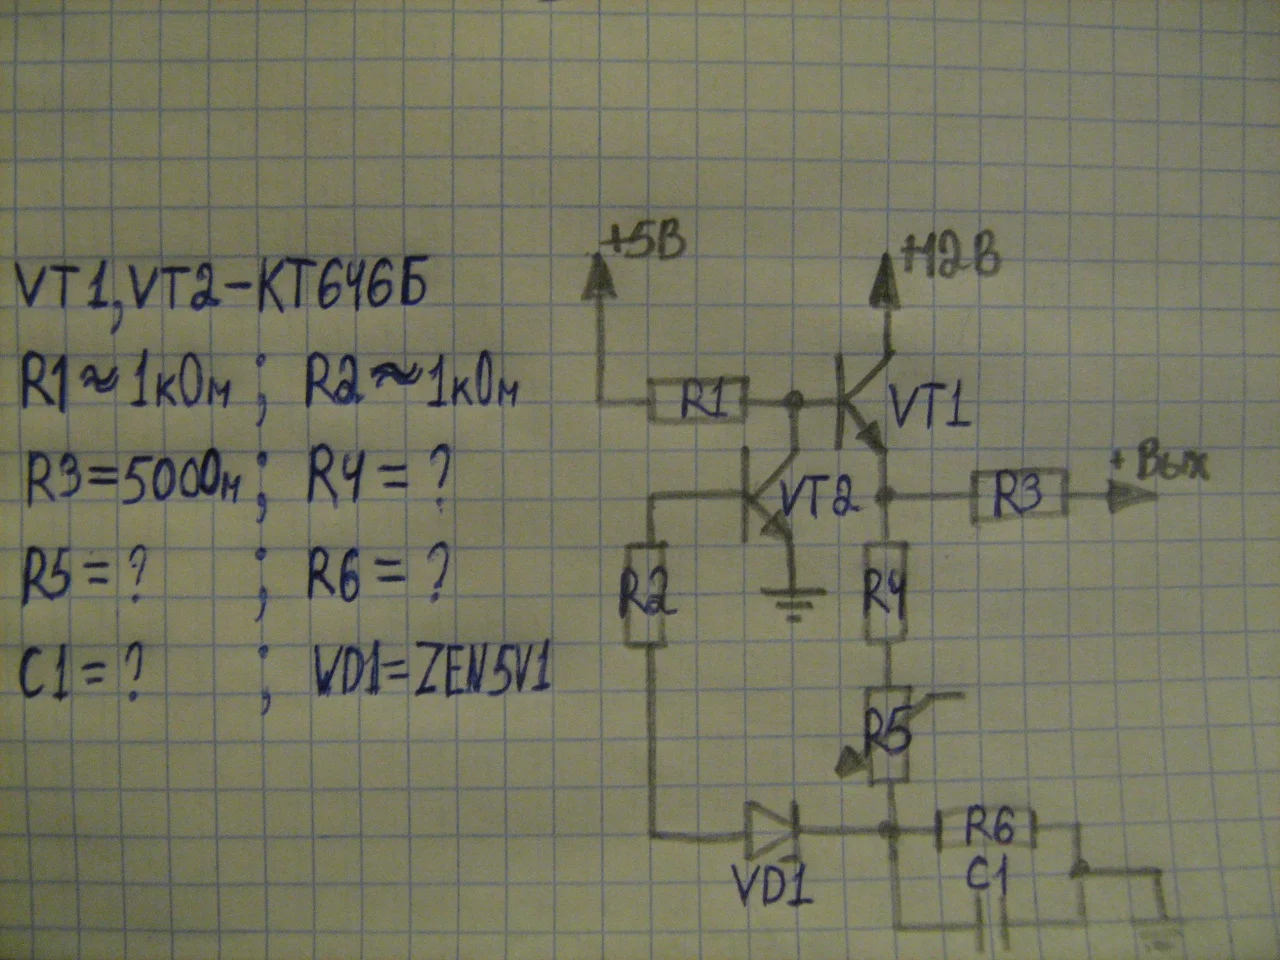 VT1, VT2-КТ646Б
R1≈1кОм ; R2≈1кОм
R3=500Ом ; R4=?
R5=? ; R6=?
C1=? ; VD1=ZEN5V1
+5В
+12В
R1
VT1
VT2
R3
+Вых
R2
R4
R5
VD1
R6
C1